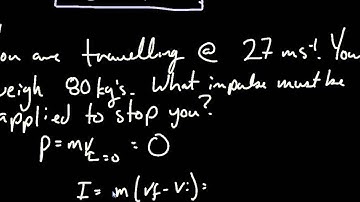 You are travelling @ 27 ms⁻¹. You
weigh 80 kg's. What impulse must be
applied to stop you?
P = mv = 0
L=0
I = m(vf - vi) =